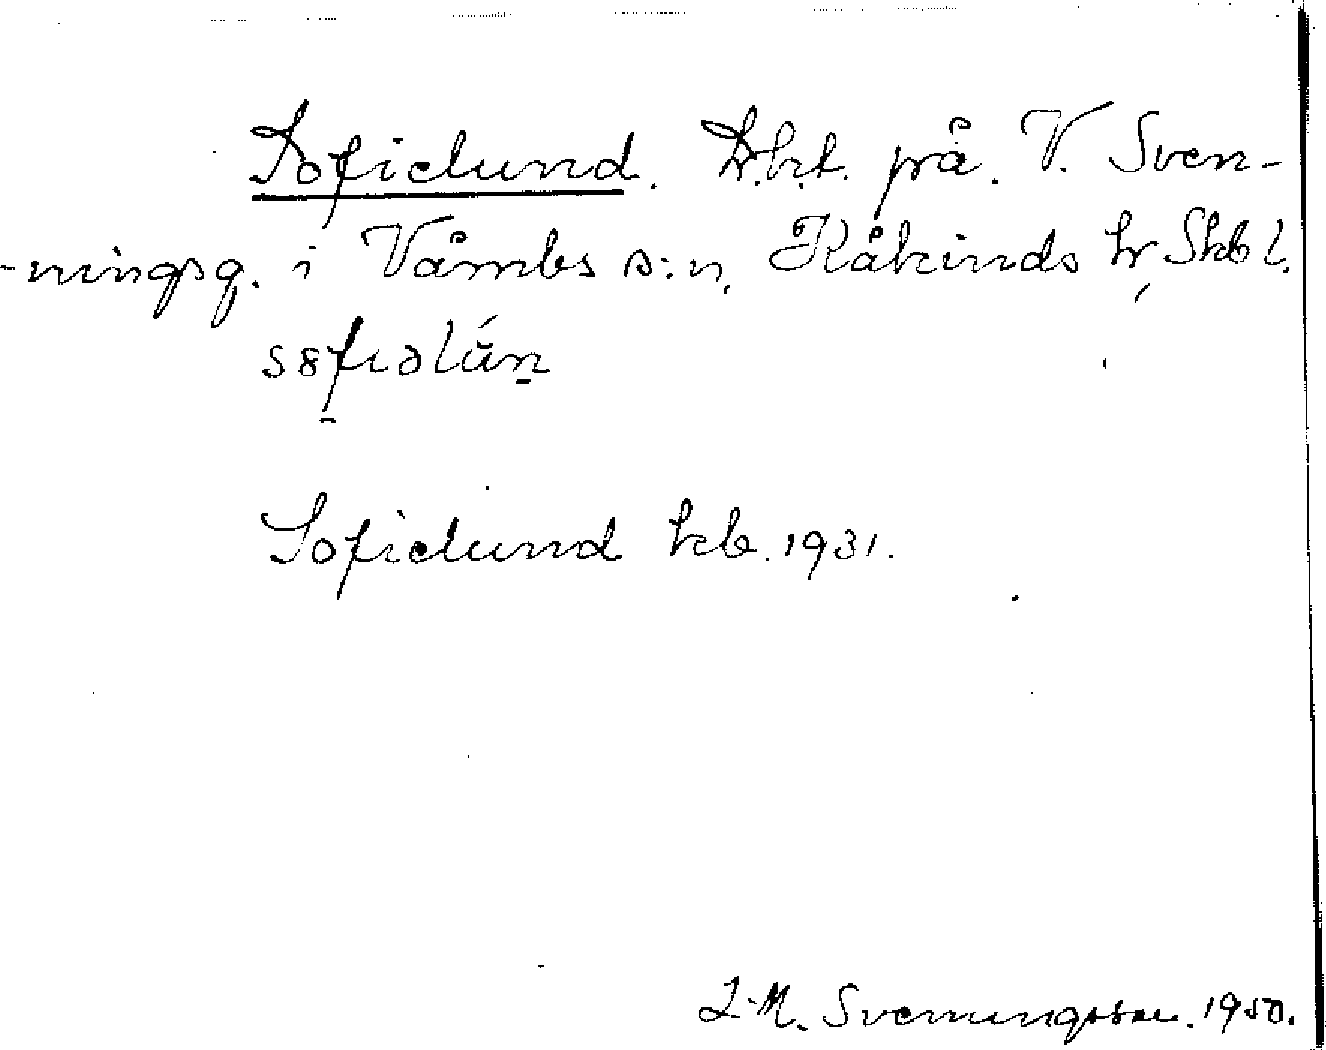 Sofielund. D.h.t. på. V. Sven-
-ningsg. i Våmbs s:n, Kåkinds hr, Skb l.
Sofielund kb. 1931.
L-M. Svenningsson. 1950.